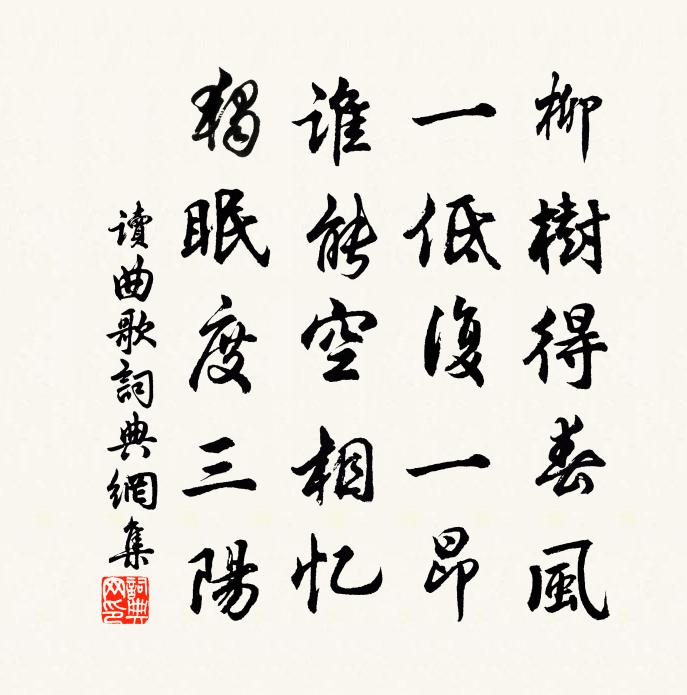 柳樹得春風
一低復一昂
誰能空相忆
獨眠度三陽
讀曲歌詞典網集
詞典网印